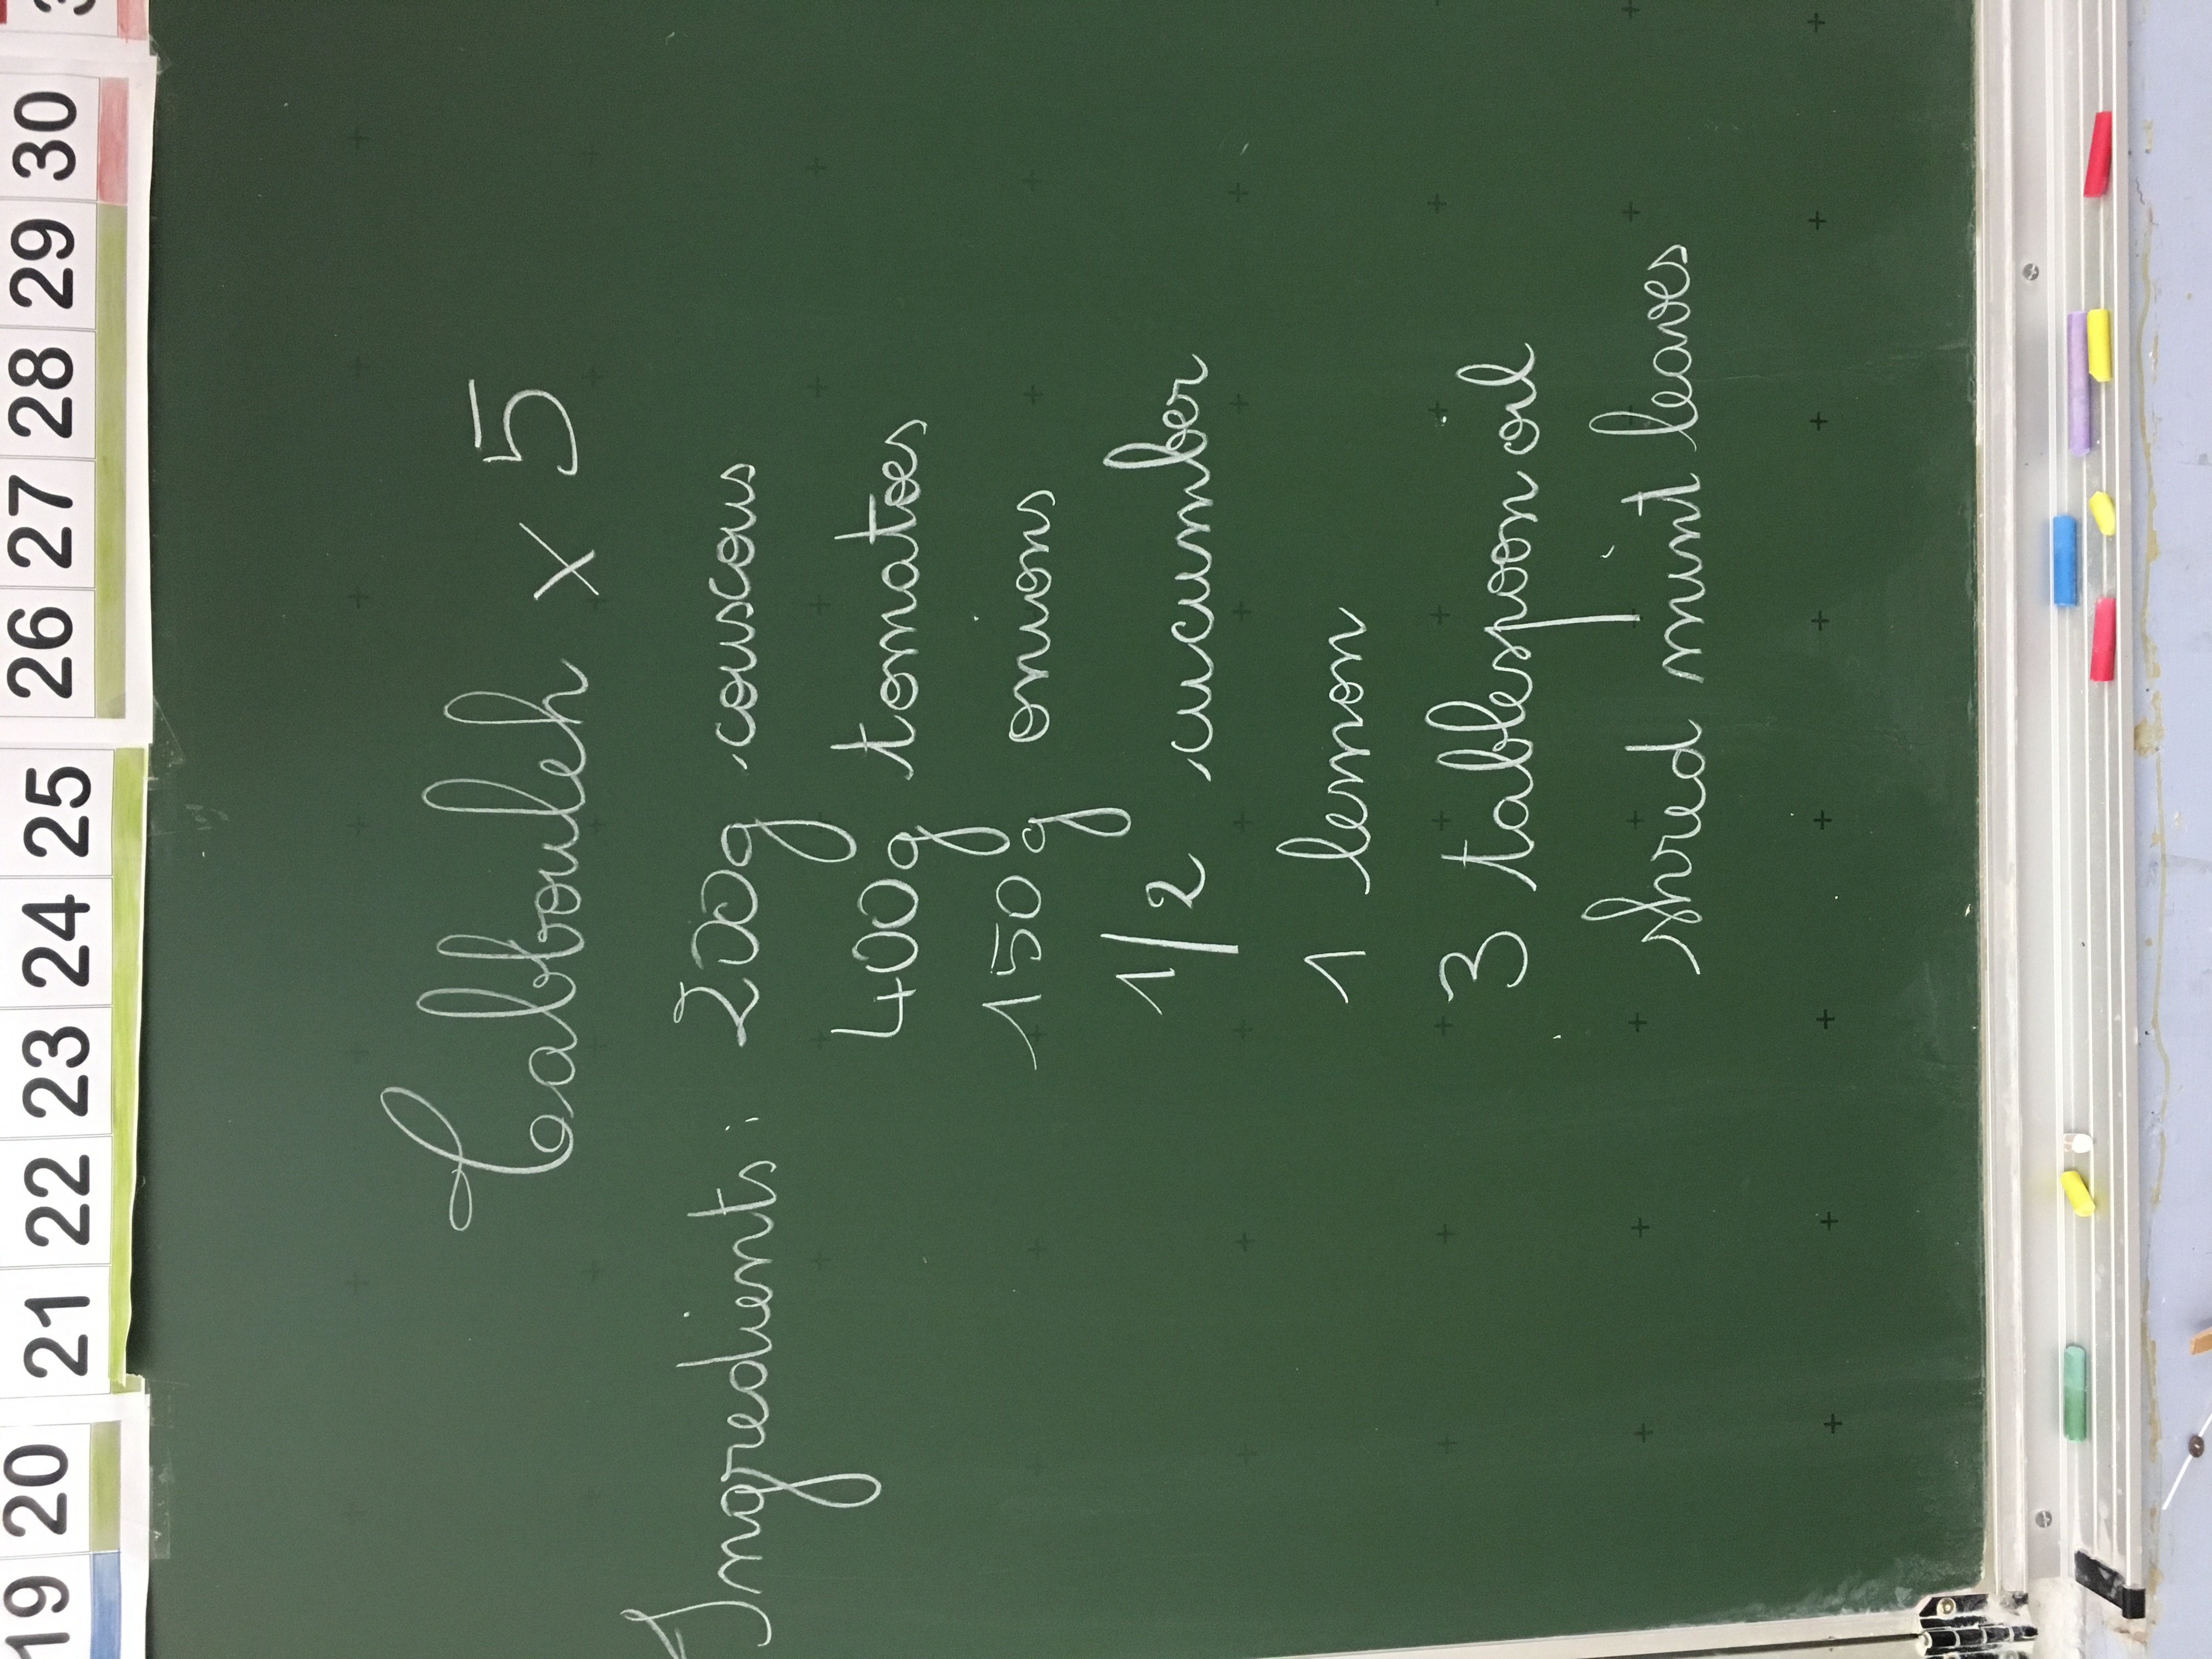 19 20 21 22 23 24 25 26 27 28 29 30
Tabbouleh x 5
Ingredients: 200g couscous
400g tomatoes
150g onions
1/2 cucumber
1 lemon
3 tablespoon oil
shred mint leaves